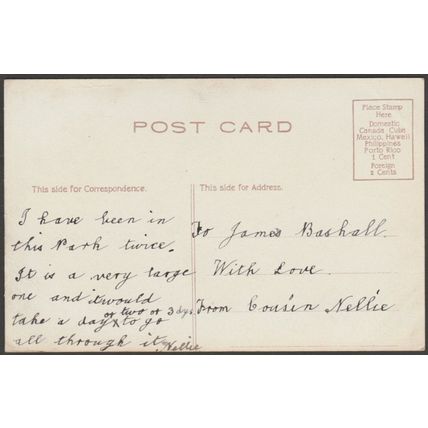 POST CARD
Place Stamp
Here
Domestic
Canada Cuba
Mexico, Hawaii
Philippines
Porto Rico
1 Cent
Foreign
2 Cents
This side for Correspondence.
This side for Address.
I have been in
this Park twice.
It is a very large
one and it would
or two or 3 dys
take a day x to go
all through it, Nellie
To James Bashall.
With Love.
From Cousin Nellie